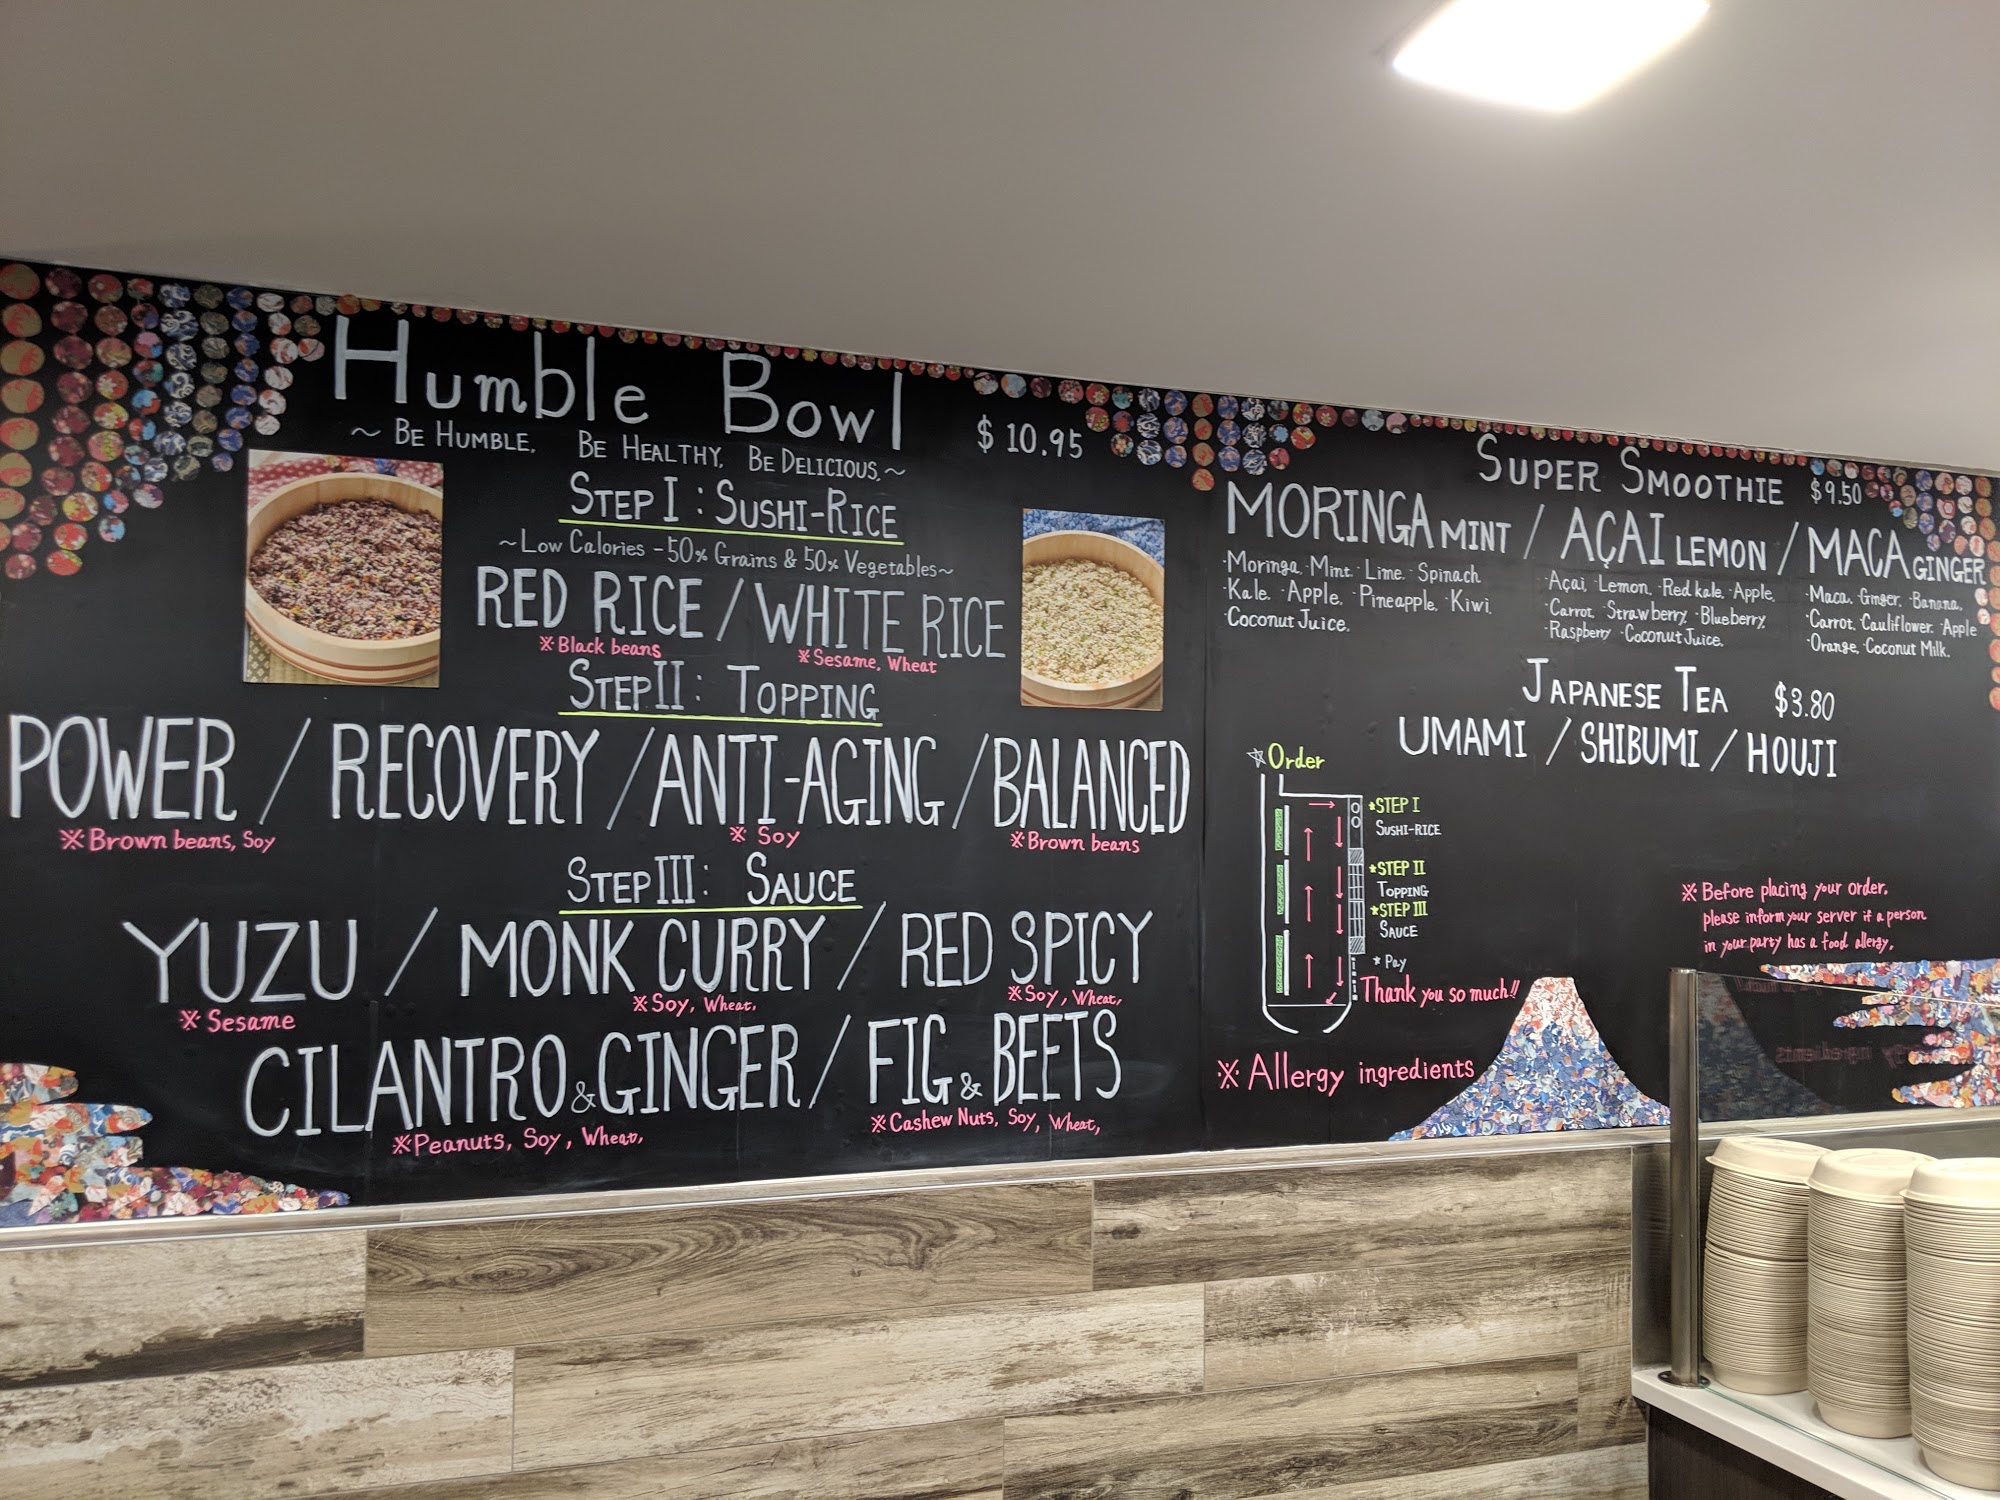 Humble Bowl
~ Be Humble, Be Healthy, Be Delicious, ~
$ 10.95
Step I : Sushi-Rice
~Low Calories - 50% Grains & 50% Vegetables~
RED RICE / WHITE RICE
※Black beans
※Sesame, Wheat
Step II : Topping
POWER / RECOVERY / ANTI-AGING / BALANCED
※Brown beans, Soy
※ Soy
※Brown beans
Step III : Sauce
YUZU / MONK CURRY / RED SPICY
※ Sesame
※Soy, Wheat,
※Soy, Wheat,
CILANTRO & GINGER / FIG & BEETS
※Peanuts, Soy, Wheat,
※Cashew Nuts, Soy, Wheat,
Super Smoothie $9.50
MORINGA MINT / AÇAI LEMON / MACA GINGER
·Moringa ·Mint ·Lime ·Spinach
·Kale, ·Apple, ·Pineapple, ·Kiwi,
·Coconut Juice,
·Açai, ·Lemon, ·Red kale, ·Apple,
·Carrot, ·Strawberry, ·Blueberry,
·Raspberry ·Coconut Juice,
·Maca, ·Ginger, ·Banana,
·Carrot, ·Cauliflower, ·Apple
·Orange, ·Coconut Milk,
Japanese Tea $3.80
UMAMI / SHIBUMI / HOUJI
☆Order
*STEP I
SUSHI-RICE
*STEP II
TOPPING
*STEP III
SAUCE
* Pay
Thank you so much!!
※ Allergy ingredients
※ Before placing your order,
please inform your server if a person
in your party has a food allergy,